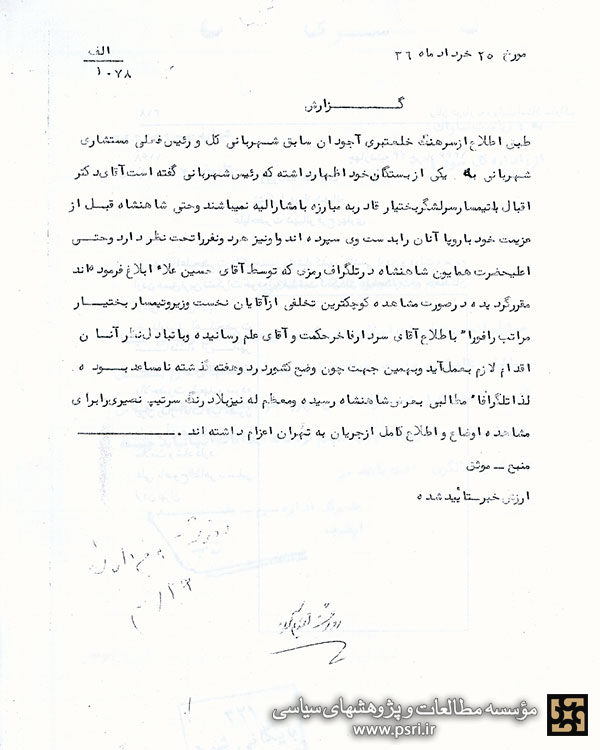 مورخ ۲۵ خرداد ماه ۳۶
الف
۱۰۷۸
گـــزارش
طبق اطلاع از سرهنگ خلعتبری آجودان سابق شهربانی کل و رئیس فعلی مستشاری
شهربانی به یکی از بستگان خود اظهار داشته که رئیس شهربانی گفته است آقای دکتر
اقبال با تیمسار سرلشگر بختیار قادر به مبارزه با مشارالیه نمیباشند وحتی شاهنشاه قبل از
عزیمت خود باروپا آنان را بدست وی سپرده اند واونیز هرد ونفر را تحت نظر دارد وحتـی
اعلیحضرت همایون شاهنشاه در تلگراف رمزی که توسط آقای حسین علاء ابلاغ فرموده اند
مقرر گردیده در صورت مشاهده کوچکترین تخلفی از آقایان نخست وزیر وتیمسار بختیـار
مراتب را فورا" با طلاع آقای سردار فاخر حکمت و آقای علم رسانیده وبا تبادل نظر آنـان
اقدام لازم بعمل آید وبهمین جهت چون وضع کشور در د وهفته گذشته نامساعد بـوده
لذا تلگرافا" مطالبی بعرض شاهنشاه رسیده ومعظم له نیز بلادرنگ سرتیپ نصیری را برای
مشاهده اوضاع و اطلاع کامل از جریان به تهران اعزام داشته اند .
منبع ـ موثق
ارزش خبر ـ تأیید شده
مؤسسه مطالعات و پژوهشهای سیاسی
www.psri.ir